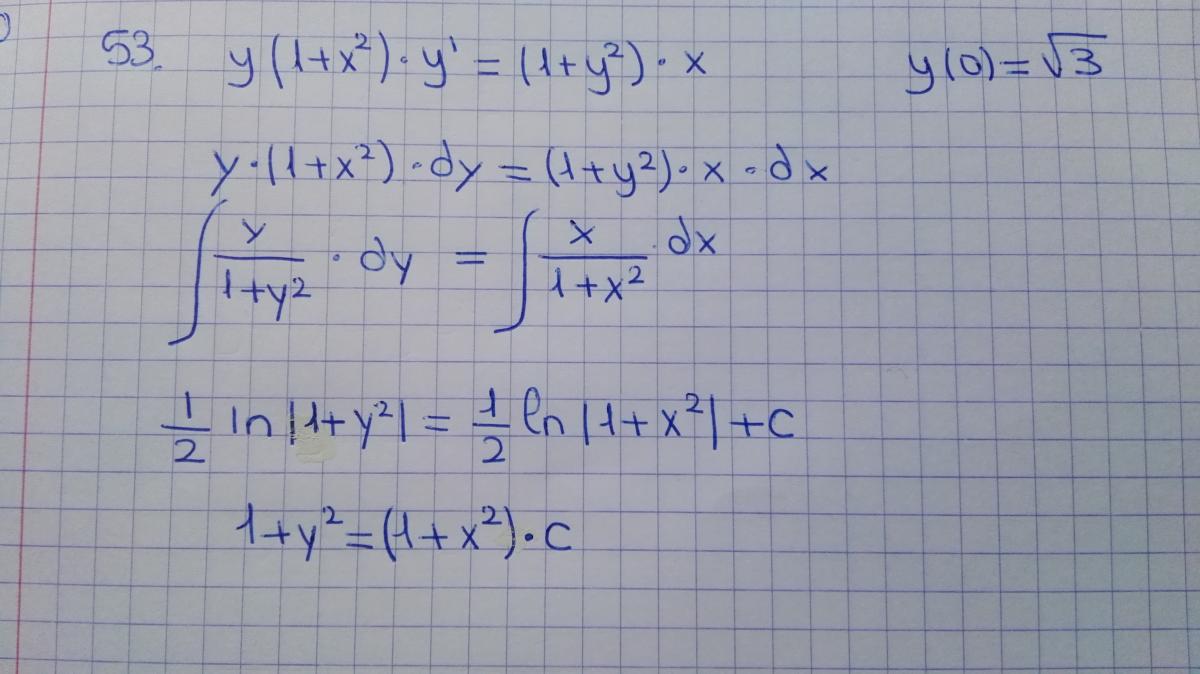 53. y(1+x²)·y' = (1+y²)·x y(0)=√3
y·(1+x²)·dy = (1+y²)·x·dx
∫ y/(1+y²) · dy = ∫ x/(1+x²) · dx
1/2 ln|1+y²| = 1/2 ln|1+x²| + C
1+y² = (1+x²)·C